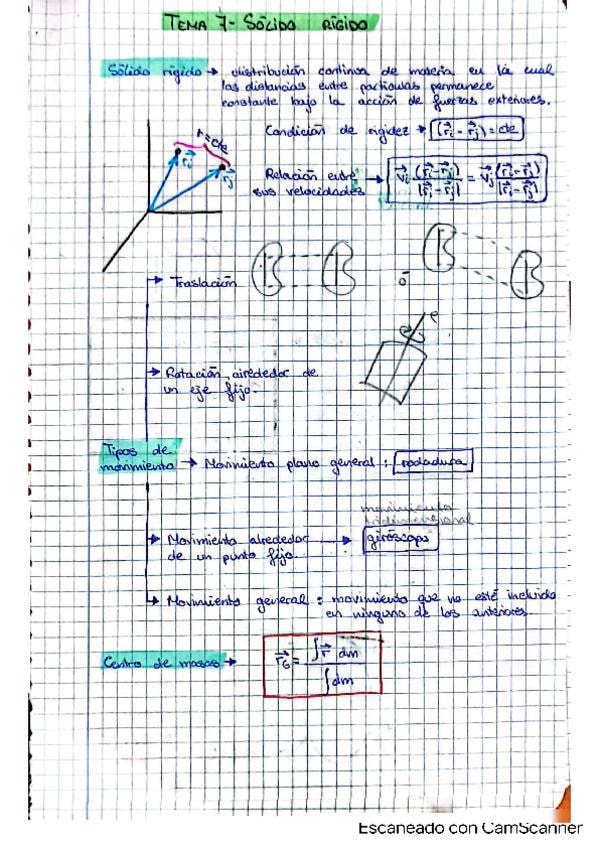 TEMA 7- SÓLIDO RÍGIDO
Sólido rígido → distribución continua de materia en la cual
las distancias entre partículas permanece
constante bajo la acción de fuerzas exteriores.
r = cte
Condición de rigidez → (r⃗i - r⃗j) = cte
r⃗i
r⃗j
Relación entre
sus velocidades → v⃗i (r⃗i - r⃗j) / |r⃗i - r⃗j| = v⃗j (r⃗i - r⃗j) / |r⃗i - r⃗j|
→ Traslación
ó
→ Rotación alrededor de
un eje fijo.
e
Tipos de
movimiento → Movimiento plano general : rodadura
movimiento
tridimensional
→ Movimiento alrededor → giróscopo
de un punto fijo.
→ Movimiento general : movimiento que no esté incluido
en ninguno de los anteriores.
Centro de masas → r⃗G = ∫ r⃗ dm / ∫ dm
Escaneado con CamScanner